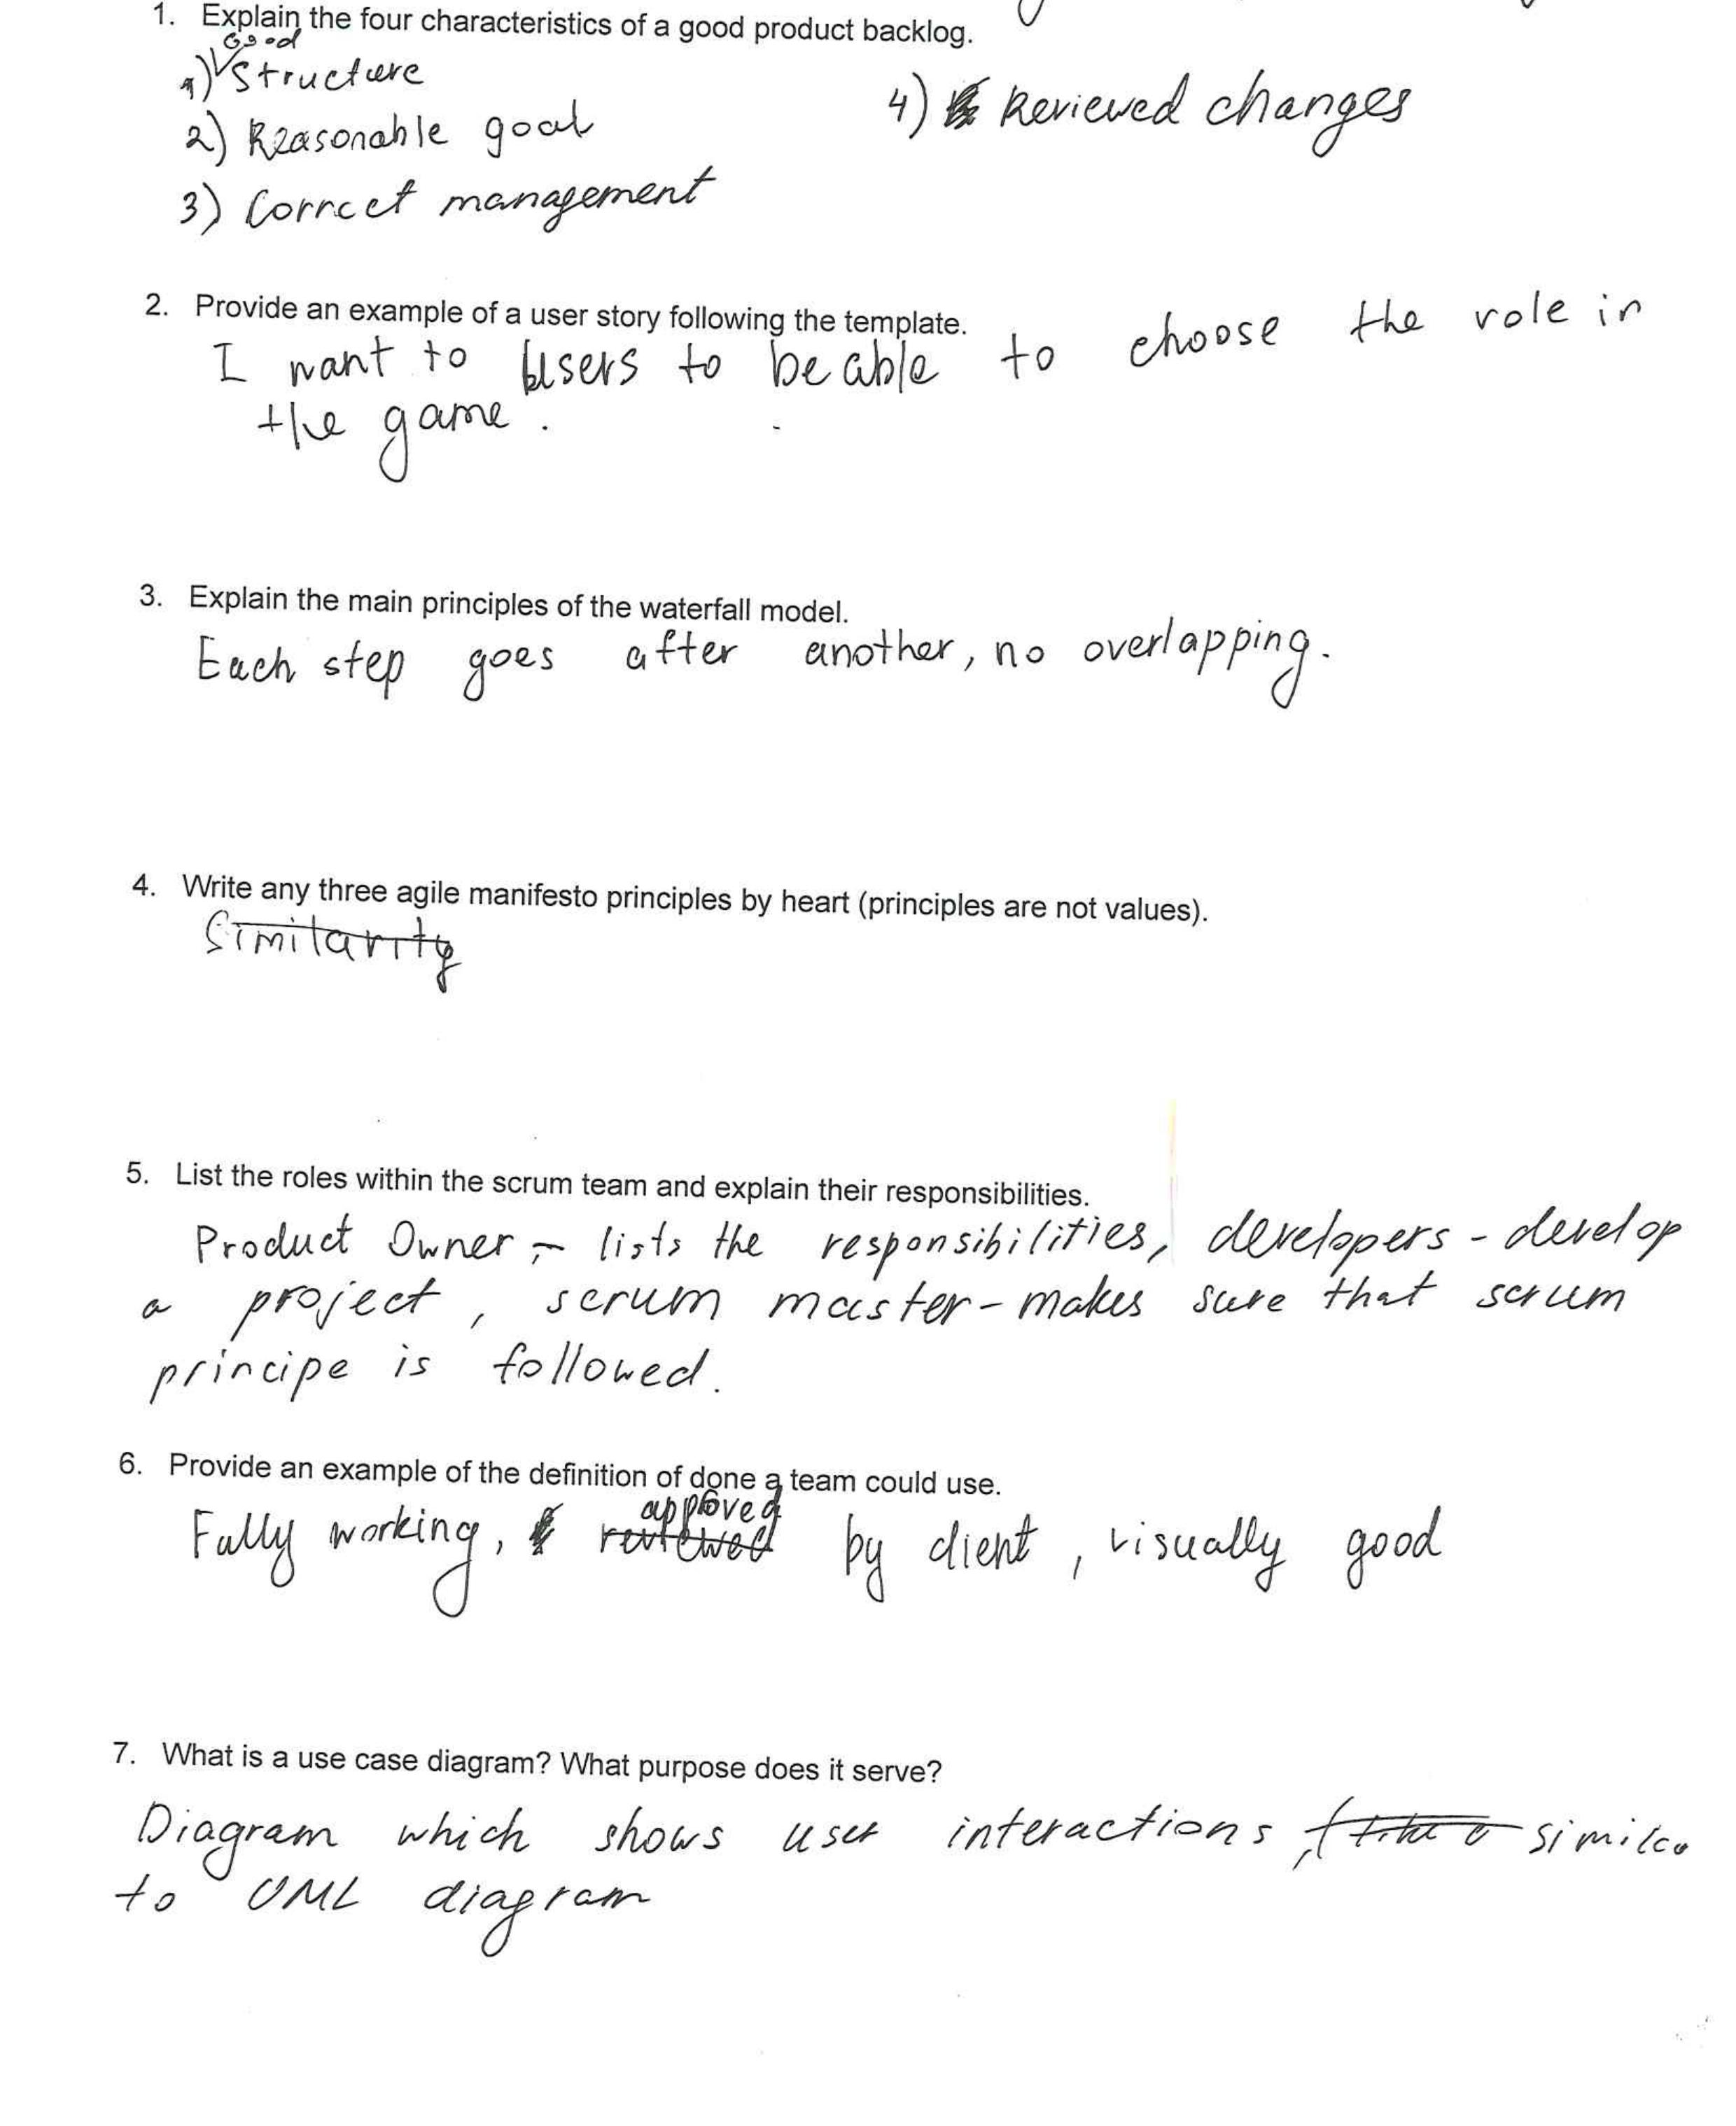 1. Explain the four characteristics of a good product backlog.
Good
1) Structure
2) Reasonable goal
3) Correct management
4) Reviewed changes
2. Provide an example of a user story following the template.
I want to Users to be able to choose the role in
the game.
3. Explain the main principles of the waterfall model.
Each step goes after another, no overlapping.
4. Write any three agile manifesto principles by heart (principles are not values).
Similarity
5. List the roles within the scrum team and explain their responsibilities.
Product Owner - lists the responsibilities, developers - develop
a project, scrum master - makes sure that scrum
principe is followed.
6. Provide an example of the definition of done a team could use.
approved
Fully working, reviewed by client, visually good
7. What is a use case diagram? What purpose does it serve?
Diagram which shows user interactions, similar
to UML diagram